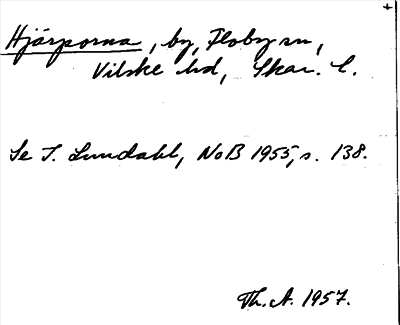 Hjärporna, by, Floby sn,
Vilske hd, Skar. l.
Se I. Lundahl, NoB 1955, s. 138.
Th. A. 1957.